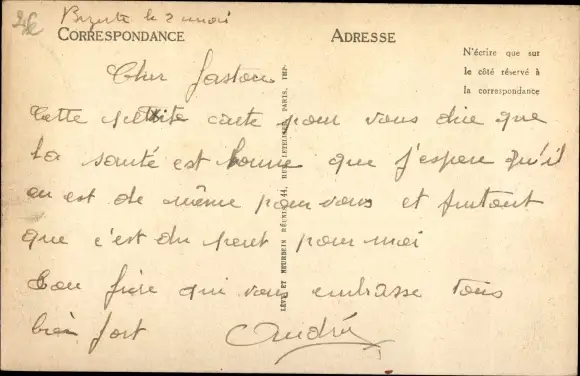 Bizerte le 2 mai
CORRESPONDANCE
ADRESSE
N'écrire que sur
le côté réservé à
la correspondance
Cher Gaston
Cette petite carte pour vous dire que
la santé est bonne que j'espere qu'il
en est de même pour vous et surtout
que c'est du peut pour moi
Ton frère qui vous embrasse tous
bien fort André
LÉVY ET NEURDEIN RÉUNIS, 44, RUE LETELLIER, PARIS, IMP.